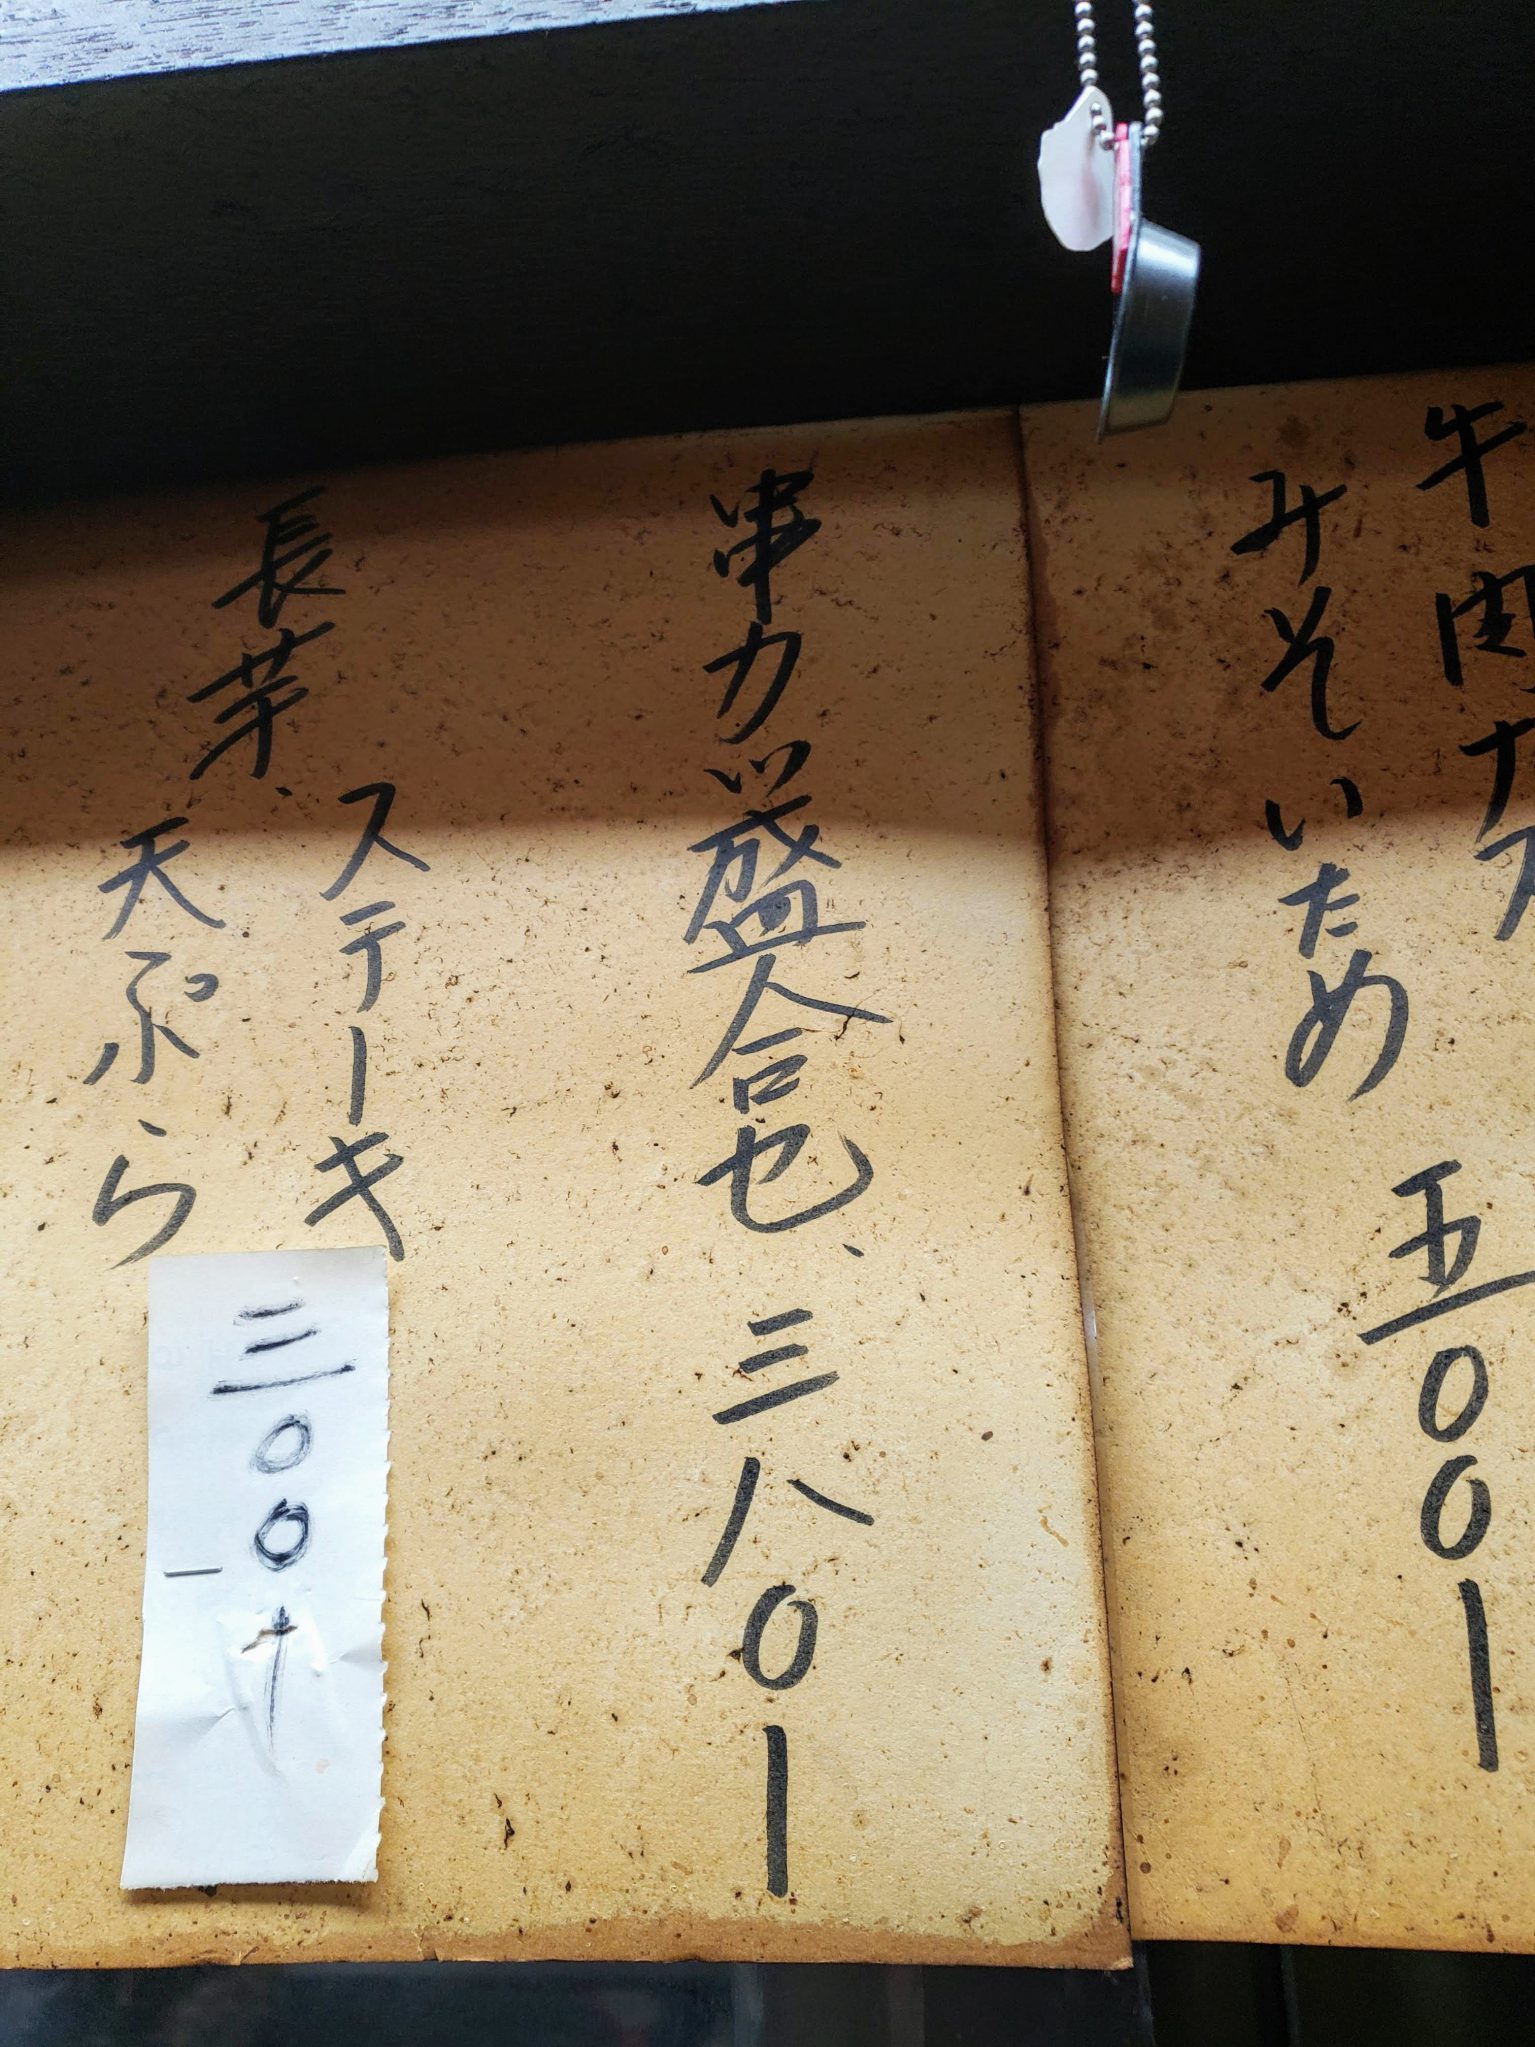 牛肉ナス
みそいため 五〇〇ー
串カツ盛合セ、三八〇ー
長芋、ステーキ
天ぷら
三〇〇ー